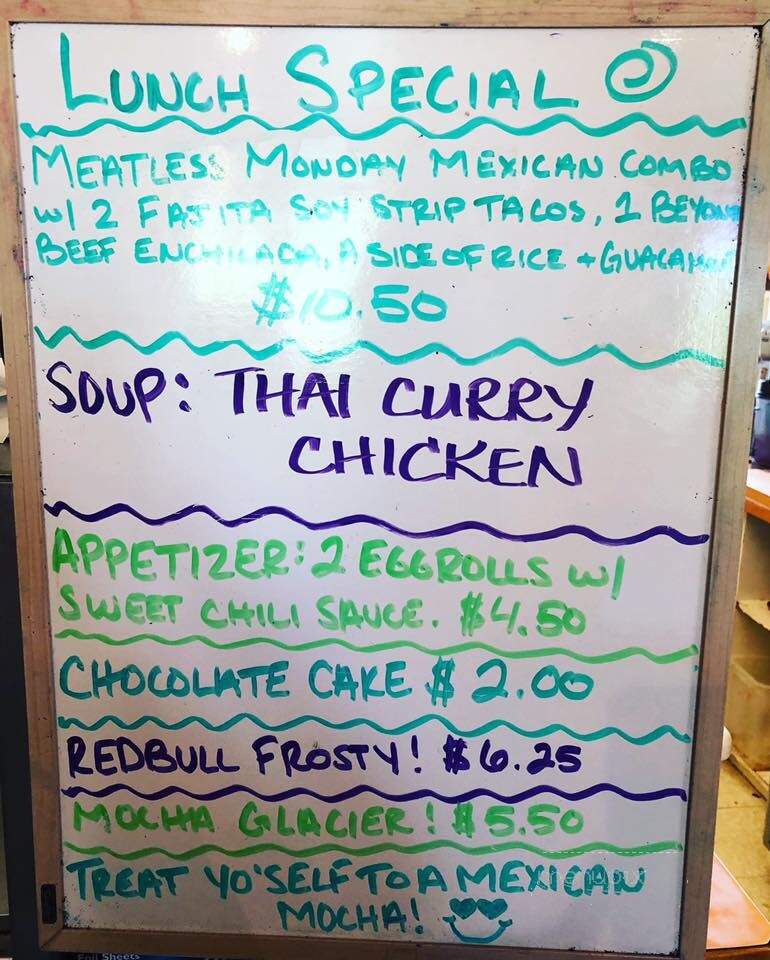 LUNCH SPECIAL
MEATLESS MONDAY MEXICAN COMBO
w/ 2 FAJITA SOY STRIP TACOS, 1 BEYOND
BEEF ENCHILADA, A SIDE OF RICE + GUACAMOLE
$10.50
SOUP: THAI CURRY
CHICKEN
APPETIZER: 2 EGGROLLS w/
SWEET CHILI SAUCE. $4.50
CHOCOLATE CAKE $2.00
REDBULL FROSTY! $6.25
MOCHA GLACIER! $5.50
TREAT YO'SELF TO A MEXICAN
MOCHA!
Foil Sheets